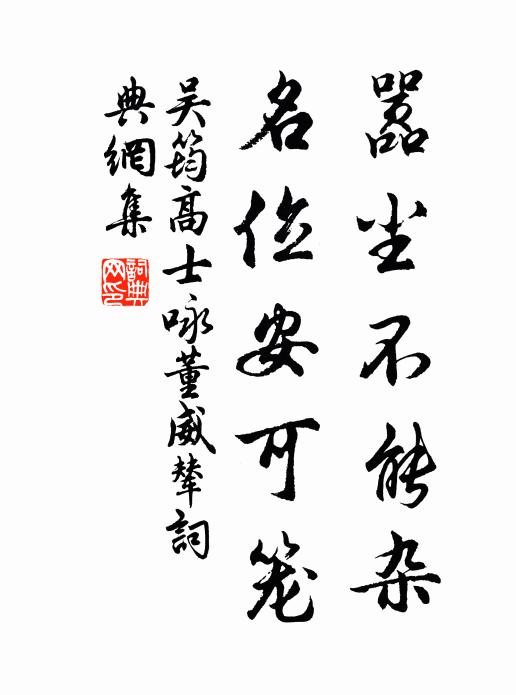 嚣尘不能杂
名位安可笼
吴筠高士咏董威輦詞
典網集
詞典
网印